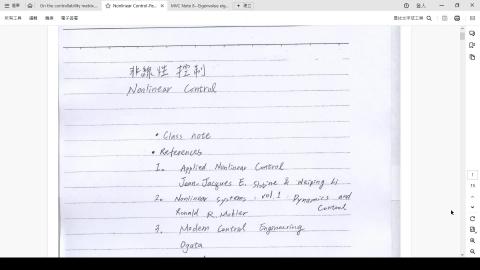 主畫面
On the controllability matrix...
Nonlinear Control-Po...
MVC Note 8--Eigenvalue eig...
建立
登入
所有工具 編輯 轉換 電子簽署
非線性控制
Nonlinear Control
• Class note
• References
1. Applied Nonlinear Control
Jean-Jacques E. Slotine & Weiping Li
2. Nonlinear Systems: vol. 1 Dynamics and
Control
Ronald R. Mohler
3. Modern Control Engineering
Ogata
1
15